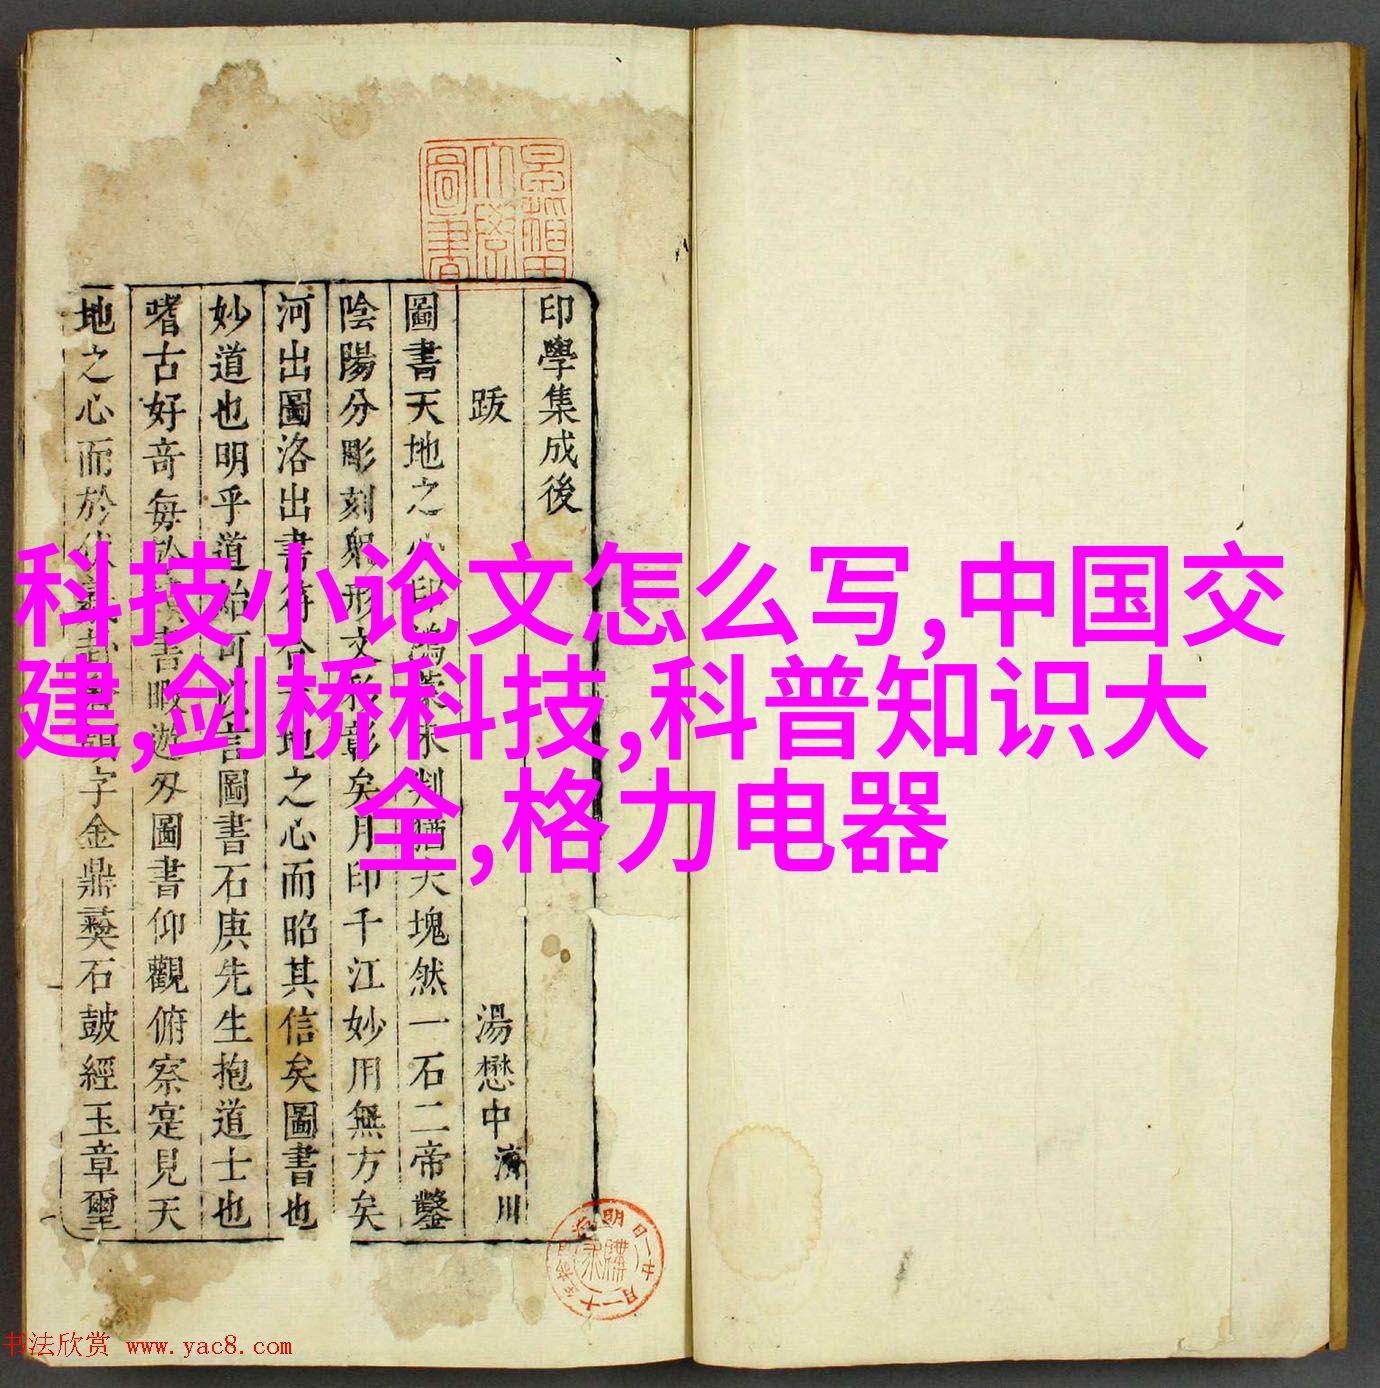 印學集成後
跋
湯懋中
圖書天地之心印
然一石二帝鑿
陰陽分彫刻
彰矣月印千江妙用無方矣
河出圖洛出書符合
地之心而昭其信矣圖書也
妙道也明乎道始可
言圖書石庚先生抱道士也
嗜古好奇每
書暇遊
圖書仰觀俯察寔見天
地之心而於
字金鼎彝石鼓經玉章璽
科技小论文怎么写,中国交
建,剑桥科技,科普知识大
全,格力电器
书法欣赏 www.yac8.com